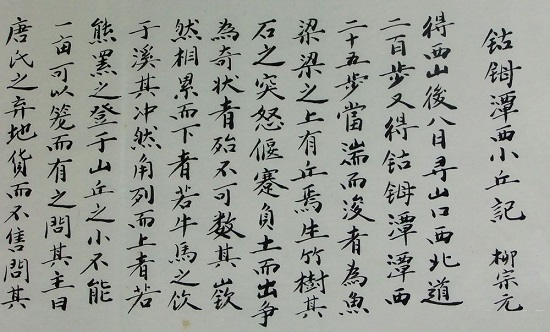 钴鉧潭西小丘記 柳宗元
得西山後八日尋山口西北道
二百步又得钴鉧潭潭西
二十五步當湍而浚者為魚
梁梁之上有丘焉生竹樹其
石之突怒偃蹇負土而出爭
為奇狀者殆不可數其嶔
然相累而下者若牛馬之飲
于溪其冲然角列而上者若
熊羆之登于山丘之小不能
一亩可以笼而有之問其主曰
唐氏之弃地貨而不售問其